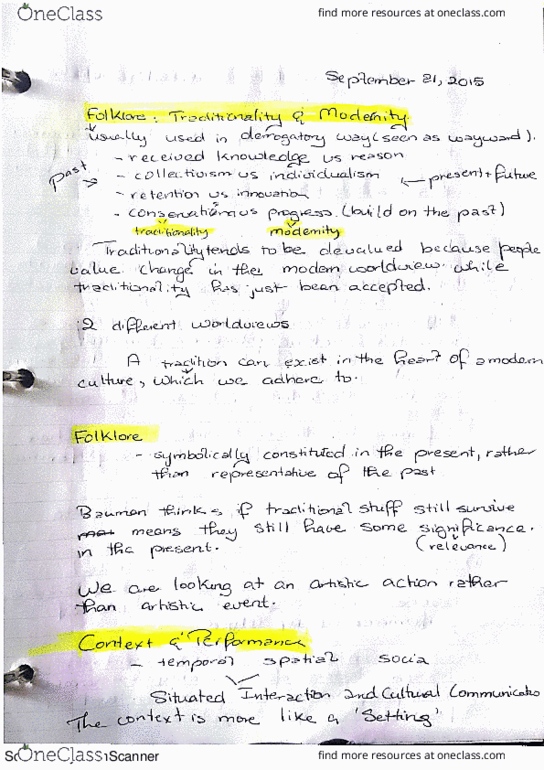 OneClass
find more resources at oneclass.com
September 21, 2015
Folklore: Traditionality & Modernity
usually used in derrogatory way (seen as wayward).
- received knowledge vs reason
past → - collectivism vs individualism ← present + future
- retention vs innovation
- conservatism vs progress. (build on the past)
traditionality modernity
Traditionality tends to be devalued because people
value change in the modern worldview while
traditionality has just been accepted.
2 different worldviews
A tradition can exist in the heart of a modern
culture, which we adhere to.
Folklore
- symbolically constituted in the present, rather
than representative of the past
Bauman thinks if traditional stuff still survive
means they still have some significance.
in the present. (relevance)
We are looking at an artistic action rather
than artistic event.
Context & Performance
- temporal spatial socia
Situated Interaction and Cultural Communicatio
The context is more like a 'Setting'
OneClass
Scanner
find more resources at oneclass.com